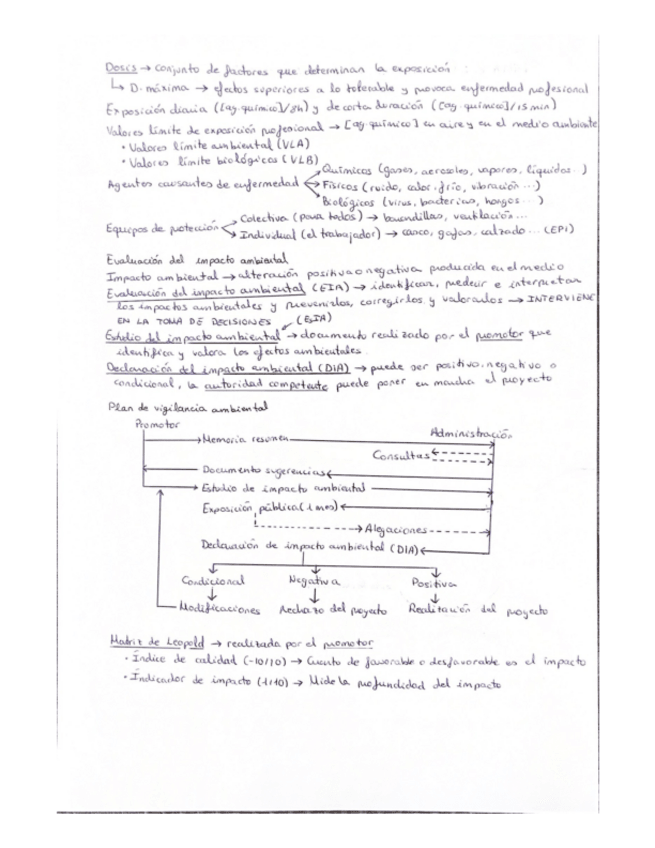 Dosis → conjunto de factores que determinan la exposición
↳ D. máxima → efectos superiores a lo tolerable y provoca enfermedad profesional
Exposición diaria ([ag. químico]/8h) y de corta duración ([ag. químico]/15 min)
Valores límite de exposición profesional → [ag. químico] en aire y en el medio ambiente
• Valores límite ambiental (VLA)
• Valores límite biológicos (VLB)
Químicos (gases, aerosoles, vapores, líquidos..)
Agentes causantes de enfermedad → Físicos (ruido, calor, frío, vibración...)
Biológicos (virus, bacterias, hongos...)
Colectiva (para todos) → barandillas, ventilación...
Equipos de protección
Individual (el trabajador) → casco, gafas, calzado... (EPI)
Evaluación del impacto ambiental
Impacto ambiental → alteración positiva o negativa producida en el medio
Evaluación del impacto ambiental (EIA) → identificar, predecir e interpretar
los impactos ambientales y prevenirlos, corregirlos y valorarlos → INTERVIENE
EN LA TOMA DE DECISIONES (EsIA)
Estudio del impacto ambiental → documento realizado por el promotor que
identifica y valora los efectos ambientales.
Declaración del impacto ambiental (DIA) → puede ser positivo, negativo o
condicional, la autoridad competente puede poner en marcha el proyecto
Plan de vigilancia ambiental
Promotor Administración
Memoria resumen
Consultas
Documento sugerencias
Estudio de impacto ambiental
Exposición pública (1 mes)
Alegaciones
Declaración de impacto ambiental (DIA)
Condicional Negativa Positiva
Modificaciones Rechazo del proyecto Realización del proyecto
Matriz de Leopold → realizada por el promotor
• Índice de calidad (-10/10) → Cuanto de favorable o desfavorable es el impacto
• Indicador de impacto (1/10) → Mide la profundidad del impacto